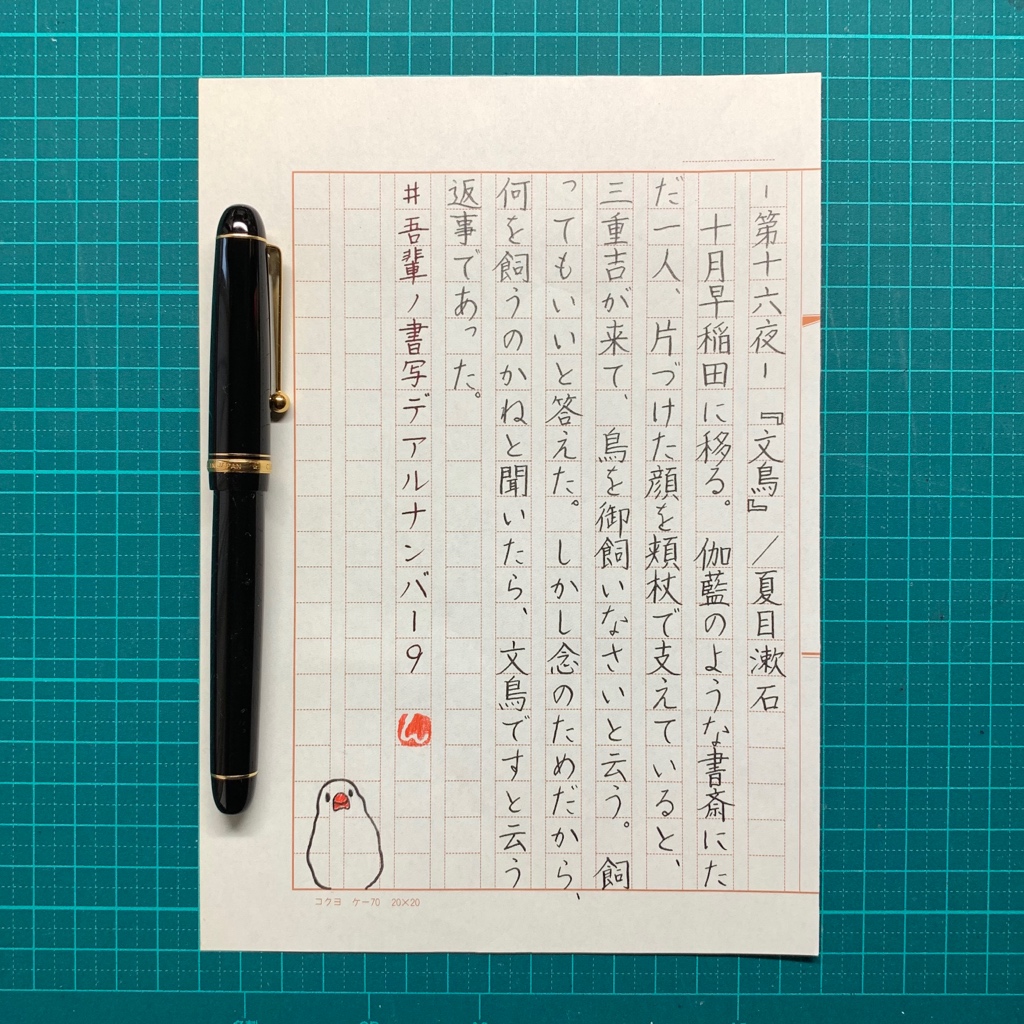 －第十六夜－『文鳥』／夏目漱石
十月早稲田に移る。伽藍のような書斎にた
だ一人、片づけた顔を頬杖で支えていると、
三重吉が来て、鳥を御飼いなさいと云う。飼
ってもいいと答えた。しかし念のためだから、
何を飼うのかねと聞いたら、文鳥ですと云う
返事であった。
＃吾輩ノ書写デアルナンバー９
コクヨ ケー70 20×20
JAPAN